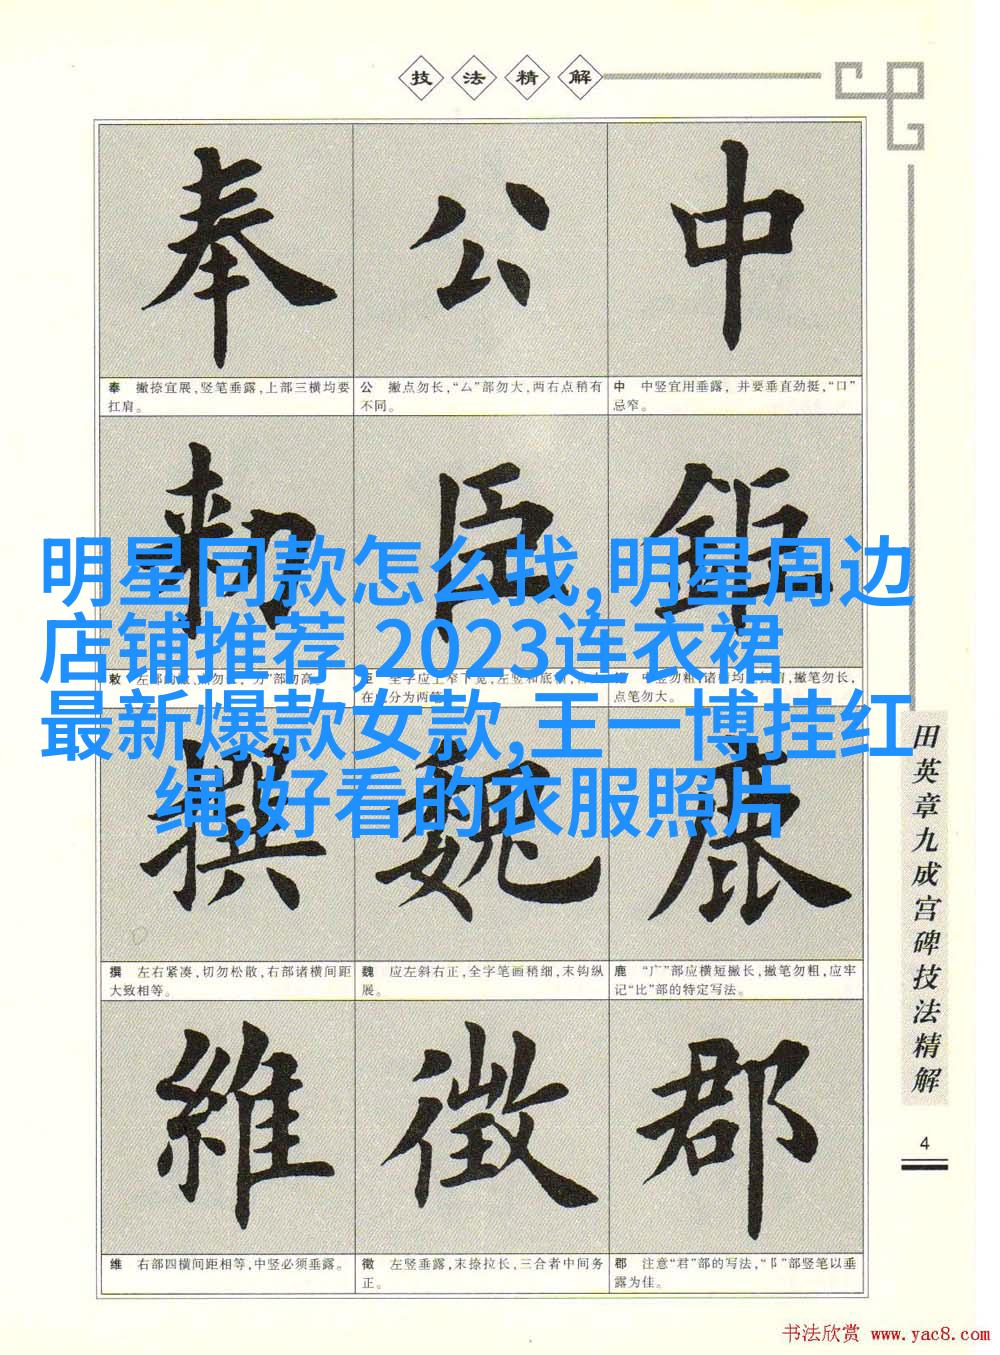 技法精解
奉 公 中
奉 撇捺宜展,竖笔垂露,上部三横均要
扛肩。
公 撇点勿长,“厶”部勿大,两右点稍有
不同。
中 中竖宜用垂露,并要垂直劲挺,“口”
忌窄。
敕 臣
明星同款怎么找,明星周边
店铺推荐,2023连衣裙
最新爆款女款,王一博挂红
绳,好看的衣服照片
点笔勿大。
撰 魏 鹿
撰 左右紧凑,切勿松散,右部诸横间距
大致相等。
魏 应左斜右正,全字笔画稍细,末钩纵
展。
鹿 “广”部应横短撇长,撇笔勿粗,应牢
记“比”部的特定写法。
維 徵 郡
维 右部四横间距相等,中竖必须垂露。
徵 左竖垂露,末捺拉长,三合者中间务
正。
郡 注意“君”部的写法,“阝”部竖笔以垂
露为佳。
田英章九成宫碑技法精解
4
书法欣赏 www.yac8.com